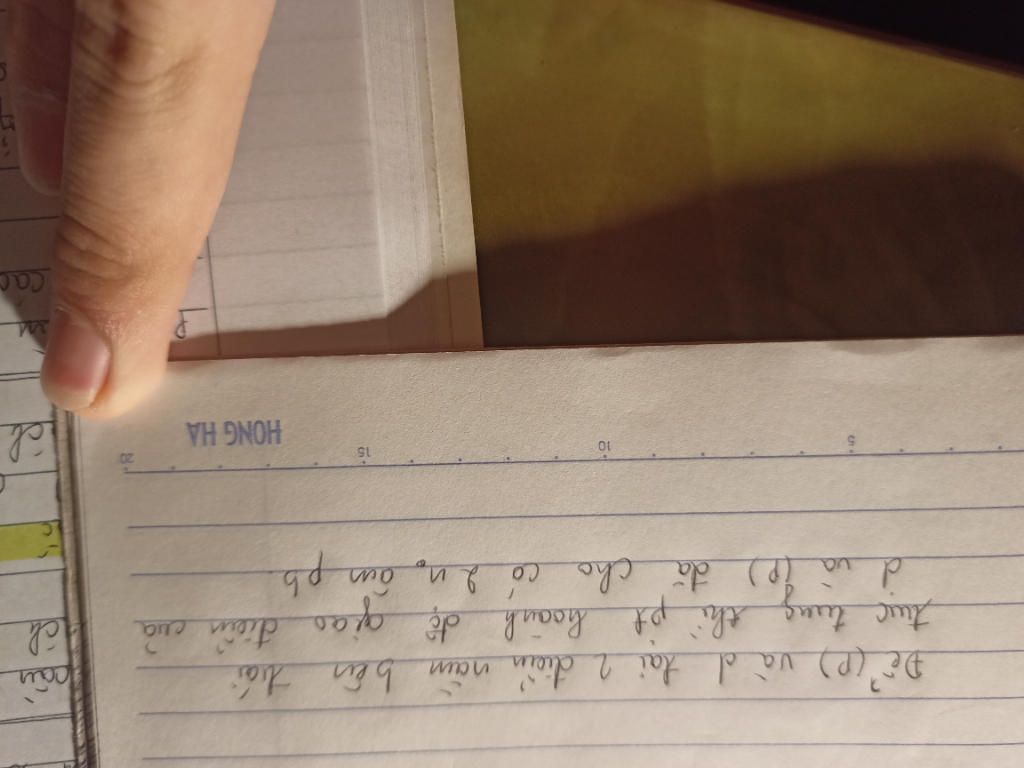 Để (P) và d tại 2 điểm nằm bên trái
trục tung thì pt hoành độ giao điểm của
d và (P) đã cho có 2 n₀ âm pb
5
10
15
20
HONG HA
cao
ch
ch